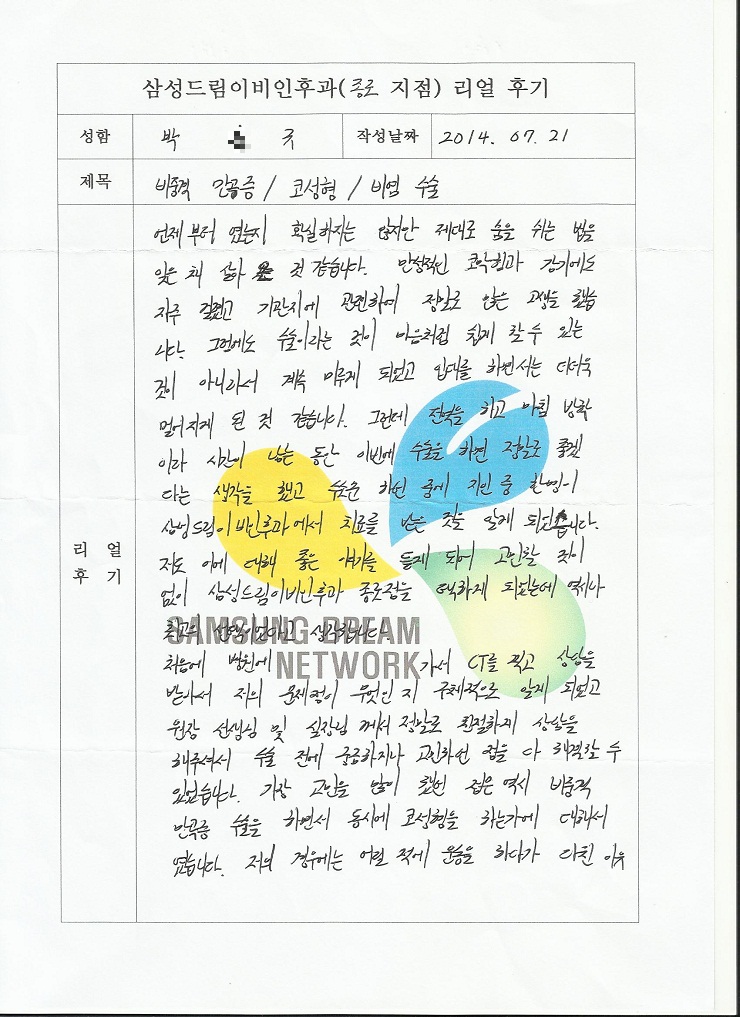 삼성드림이비인후과(종로 지점) 리얼 후기
성함 박 규 작성날짜 2014. 07. 21
제목 비중격 만곡증 / 코성형 / 비염 수술
리 얼
후 기
언제 부터 였는지 확실하지는 않지만 제대로 숨을 쉬는 법을
잊은 채 살아 온 것 같습니다. 만성적인 코막힘과 감기에도
자주 걸렸고 기관지에 관련하여 정말로 많은 고생을 했습
니다. 그럼에도 수술이라는 것이 마음처럼 쉽게 할 수 있는
것이 아니라서 계속 미루게 되었고 입대를 하면서는 더더욱
멀어지게 된 것 같습니다. 그런데 전역을 하고 마침 방학
이라 시간이 남는 동안 이번에 수술을 하면 정말로 좋겠
다는 생각을 했고 수소문 하던 중에 지인 중 한명이
삼성드림이비인후과에서 치료를 받은 것을 알게 되었습니다.
저도 이에 대해 좋은 얘기를 듣게 되어 고민할 것이
없이 삼성드림이비인후과 종로점을 택하게 되었는데 역시나
최고의 선택이었다고 생각합니다.
SAMSUNG DREAM
NETWORK
처음에 병원에 가서 CT를 찍고 상담을
받아서 저의 문제점이 무엇인 지 구체적으로 알게 되었고
원장 선생님 및 실장님 께서 정말로 친절하게 상담을
해주셔서 수술 전에 궁금하거나 고민하던 점을 다 해결할 수
있었습니다. 가장 고민을 많이 했던 점은 역시 비중격
만곡증 수술을 하면서 동시에 코성형을 하는가에 대해서
였습니다. 저의 경우에는 어릴 적에 운동을 하다가 다친 이유